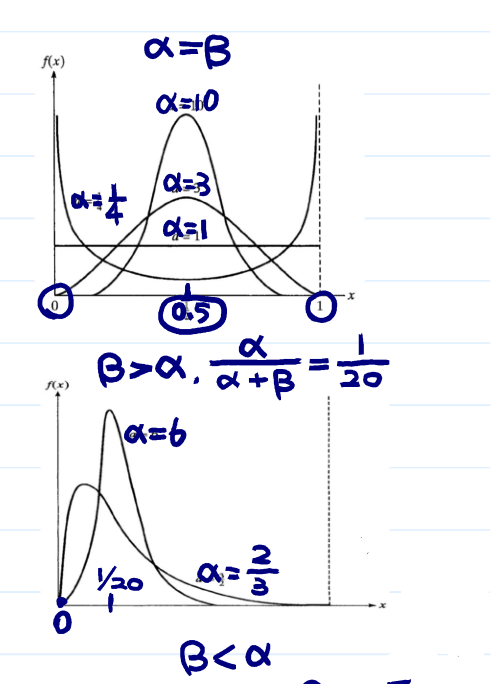 α=β
f(x)
α=10
α=3
α=1/4
α=1
0 0.5 1 x
β>α, α/(α+β) = 1/20
f(x)
α=6
α=2/3
1/20
0 x
β<α